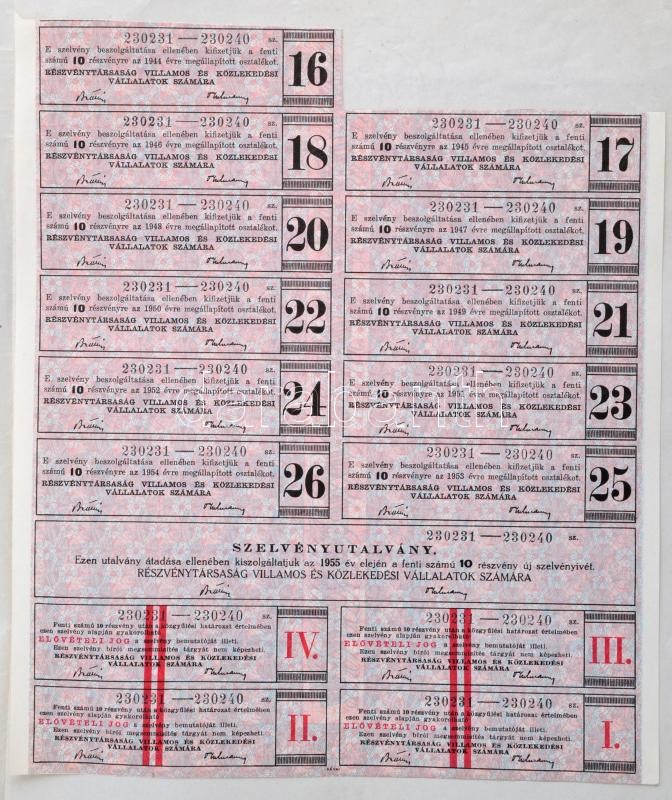 230231—230240 sz.
E szelvény beszolgáltatása ellenében kifizetjük a fenti
számú 10 részvényre az 1944 évre megállapított osztalékot.
RÉSZVÉNYTÁRSASÁG VILLAMOS ÉS KÖZLEKEDÉSI
VÁLLALATOK SZÁMÁRA
16
230231—230240 sz.
E szelvény beszolgáltatása ellenében kifizetjük a fenti
számú 10 részvényre az 1946 évre megállapított osztalékot.
RÉSZVÉNYTÁRSASÁG VILLAMOS ÉS KÖZLEKEDÉSI
VÁLLALATOK SZÁMÁRA
18
230231—230240 sz.
E szelvény beszolgáltatása ellenében kifizetjük a fenti
számú 10 részvényre az 1945 évre megállapított osztalékot.
RÉSZVÉNYTÁRSASÁG VILLAMOS ÉS KÖZLEKEDÉSI
VÁLLALATOK SZÁMÁRA
17
230231—230240 sz.
E szelvény beszolgáltatása ellenében kifizetjük a fenti
számú 10 részvényre az 1948 évre megállapított osztalékot.
RÉSZVÉNYTÁRSASÁG VILLAMOS ÉS KÖZLEKEDÉSI
VÁLLALATOK SZÁMÁRA
20
230231—230240 sz.
E szelvény beszolgáltatása ellenében kifizetjük a fenti
számú 10 részvényre az 1947 évre megállapított osztalékot.
RÉSZVÉNYTÁRSASÁG VILLAMOS ÉS KÖZLEKEDÉSI
VÁLLALATOK SZÁMÁRA
19
230231—230240 sz.
E szelvény beszolgáltatása ellenében kifizetjük a fenti
számú 10 részvényre az 1950 évre megállapított osztalékot.
RÉSZVÉNYTÁRSASÁG VILLAMOS ÉS KÖZLEKEDÉSI
VÁLLALATOK SZÁMÁRA
22
230231—230240 sz.
E szelvény beszolgáltatása ellenében kifizetjük a fenti
számú 10 részvényre az 1949 évre megállapított osztalékot.
RÉSZVÉNYTÁRSASÁG VILLAMOS ÉS KÖZLEKEDÉSI
VÁLLALATOK SZÁMÁRA
21
230231—230240 sz.
E szelvény beszolgáltatása ellenében kifizetjük a fenti
számú 10 részvényre az 1952 évre megállapított osztalékot.
RÉSZVÉNYTÁRSASÁG VILLAMOS ÉS KÖZLEKEDÉSI
VÁLLALATOK SZÁMÁRA
24
230231—230240 sz.
E szelvény beszolgáltatása ellenében kifizetjük a fenti
számú 10 részvényre az 1951 évre megállapított osztalékot.
RÉSZVÉNYTÁRSASÁG VILLAMOS ÉS KÖZLEKEDÉSI
VÁLLALATOK SZÁMÁRA
23
230231—230240 sz.
E szelvény beszolgáltatása ellenében kifizetjük a fenti
számú 10 részvényre az 1954 évre megállapított osztalékot.
RÉSZVÉNYTÁRSASÁG VILLAMOS ÉS KÖZLEKEDÉSI
VÁLLALATOK SZÁMÁRA
26
230231—230240 sz.
E szelvény beszolgáltatása ellenében kifizetjük a fenti
számú 10 részvényre az 1953 évre megállapított osztalékot.
RÉSZVÉNYTÁRSASÁG VILLAMOS ÉS KÖZLEKEDÉSI
VÁLLALATOK SZÁMÁRA
25
230231—230240 sz.
SZELVÉNYUTALVÁNY.
Ezen utalvány átadása ellenében kiszolgáltatjuk az 1955 év elején a fenti számú 10 részvény új szelvényívét.
RÉSZVÉNYTÁRSASÁG VILLAMOS ÉS KÖZLEKEDÉSI VÁLLALATOK SZÁMÁRA
230231—230240 sz.
Fenti számú 10 részvény után a közgyűlési határozat értelmében
ezen szelvény alapján gyakorolható
ELŐVÉTELI JOG a szelvény bemutatóját illeti.
Ezen szelvény birói megsemmisítés tárgyát nem képezheti.
RÉSZVÉNYTÁRSASÁG VILLAMOS ÉS KÖZLEKEDÉSI
VÁLLALATOK SZÁMÁRA
IV.
230231—230240 sz.
Fenti számú 10 részvény után a közgyűlési határozat értelmében
ezen szelvény alapján gyakorolható
ELŐVÉTELI JOG a szelvény bemutatóját illeti.
Ezen szelvény birói megsemmisítés tárgyát nem képezheti.
RÉSZVÉNYTÁRSASÁG VILLAMOS ÉS KÖZLEKEDÉSI
VÁLLALATOK SZÁMÁRA
III.
230231—230240 sz.
Fenti számú 10 részvény után a közgyűlési határozat értelmében
ezen szelvény alapján gyakorolható
ELŐVÉTELI JOG a szelvény bemutatóját illeti.
Ezen szelvény birói megsemmisítés tárgyát nem képezheti.
RÉSZVÉNYTÁRSASÁG VILLAMOS ÉS KÖZLEKEDÉSI
VÁLLALATOK SZÁMÁRA
II.
230231—230240 sz.
Fenti számú 10 részvény után a közgyűlési határozat értelmében
ezen szelvény alapján gyakorolható
ELŐVÉTELI JOG a szelvény bemutatóját illeti.
Ezen szelvény birói megsemmisítés tárgyát nem képezheti.
RÉSZVÉNYTÁRSASÁG VILLAMOS ÉS KÖZLEKEDÉSI
VÁLLALATOK SZÁMÁRA
I.